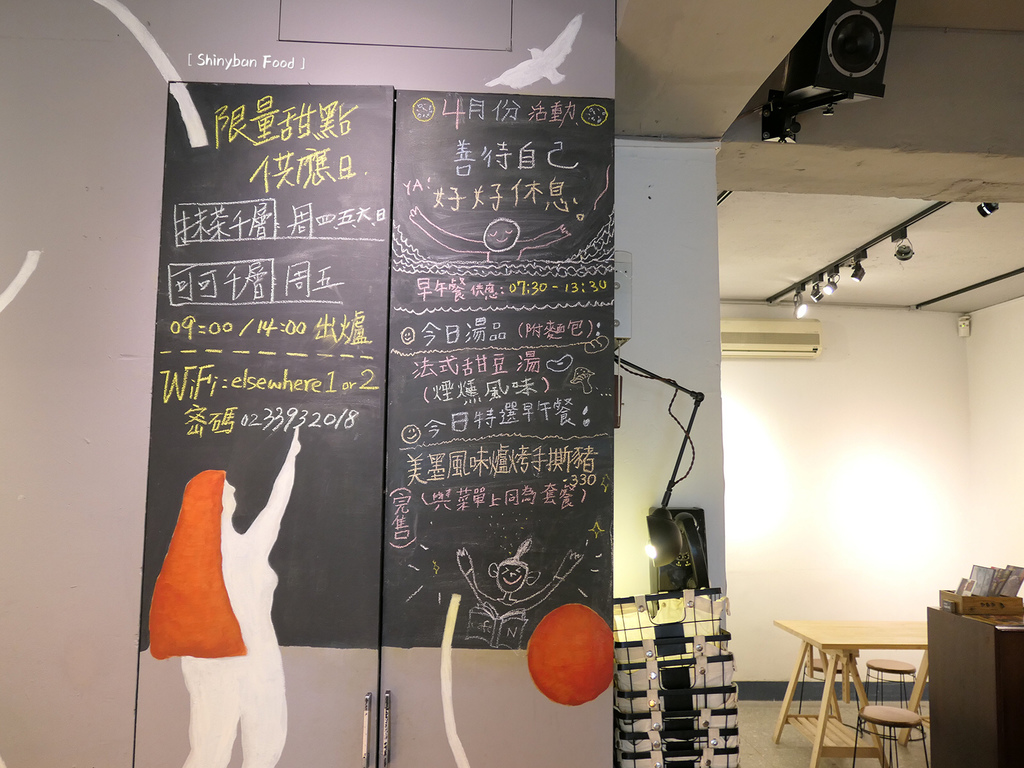 [ Shinyban Food 」
限量甜點
供應日.
抹茶千層 周四五六日
可可千層 周五
09:00/14:00 出爐
WiFi: elsewhere 1 or 2
密碼 0233932018
4月份 活動.
善待自己
YA! 好好休息。
早午餐 供應: 07:30-13:30
今日湯品 (附麵包):
法式甜豆湯
(煙燻風味)...
今日特選早午餐:
美墨風味爐烤手撕豬
330
(與菜單上同為套餐)
(完售)
F N